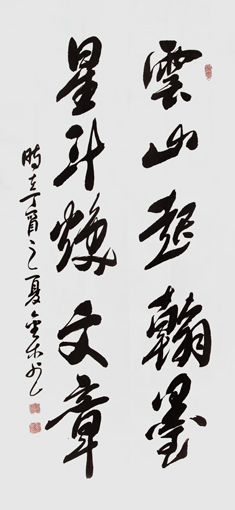 雲山起翰墨
星斗焕文章
時在丁酉之夏金木书